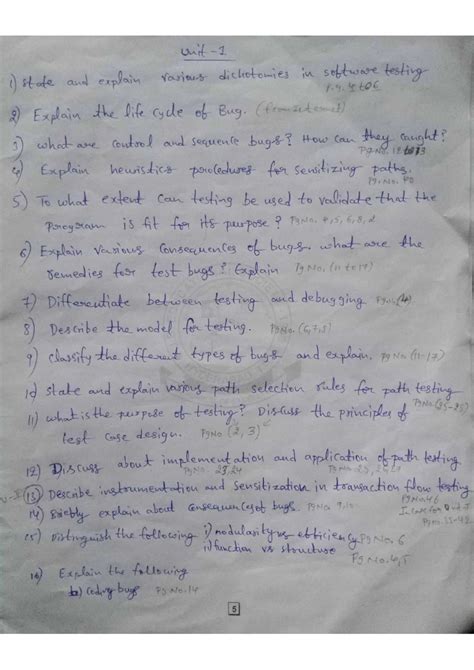 Unit - 1
1) State and explain various dichotomies in software testing
2) Explain the life cycle of Bug.
3) what are control and sequence bugs? How can they caught?
4) Explain heuristics procedures for sensitizing paths.
5) To what extent can testing be used to validate that the
program is fit for its purpose? PgNo. 4,5,6,8,2
6) Explain various consequences of bugs. what are the
remedies for test bugs? Explain PgNo. (11 to 17)
7) Differentiate between testing and debugging
8) Describe the model for testing. PgNo. (6,7,8)
9) classify the different types of bugs and explain. PgNo. (11-17)
10) state and explain various path selection rules for path testing
11) what is the purpose of testing? Discuss the principles of
test case design. PgNo. (2,3)
12) Discuss about implementation and application of path testing
13) Describe instrumentation and Sensitization in transaction flow testing
14) Briefly explain about consequences of bugs. PgNo. 9,10
15) Distinguish the following i) modularity vs efficiency PgNo. 6
ii) function vs structure
PgNo. 4,5
16) Explain the following
b) coding bugs PgNo. 14
5